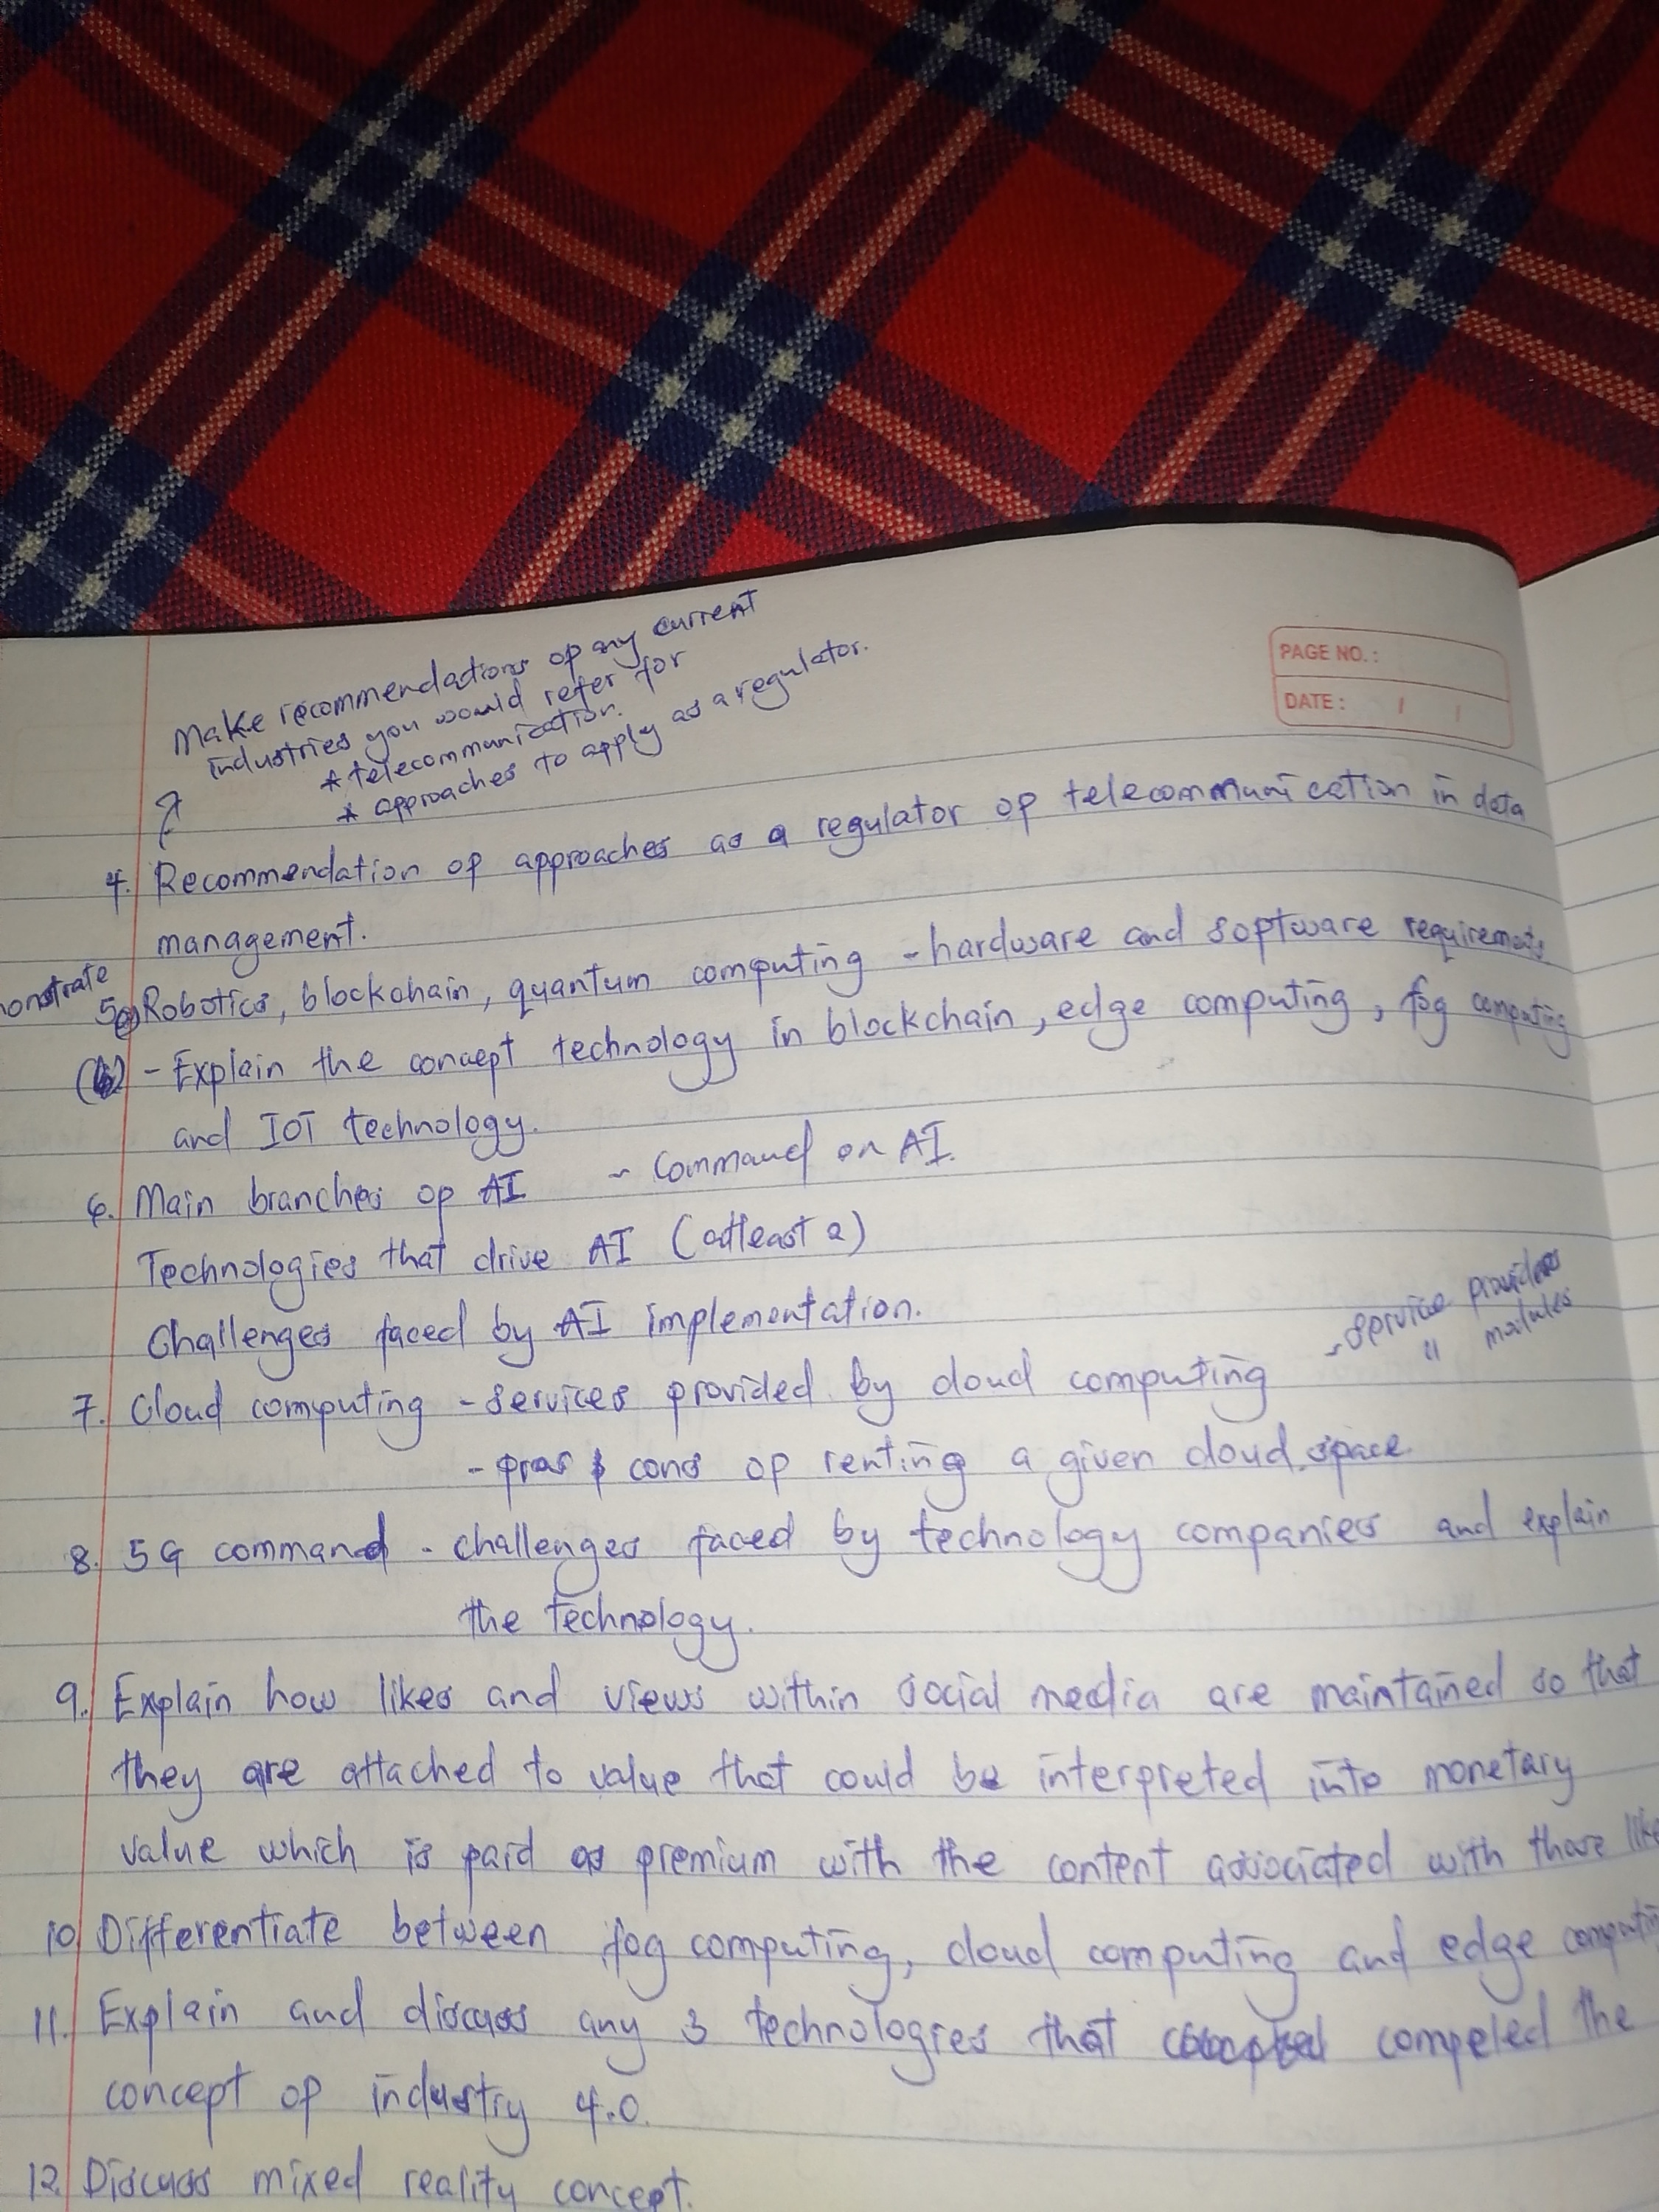 Make recommendations of any current
industries you would refer for
* telecommunication.
* approaches to apply as a regulator.
PAGE NO.:
DATE: / /
4. Recommendation of approaches as a regulator of telecommunication in data
management.
onstrate
5(a) Robotics, blockchain, quantum computing - hardware and software requirements
(b) - Explain the concept technology in blockchain, edge computing, fog computing
and IOT technology.
6. Main branches of AI - Command on AI.
Technologies that drive AI (atleast 2)
Challenges faced by AI implementation.
- service providers
" modules
7. Cloud computing - services provided by cloud computing
- pros & cons of renting a given cloud space.
8. 5G command - challenges faced by technology companies and explain
the technology.
9. Explain how likes and views within social media are maintained so that
they are attached to value that could be interpreted into monetary
value which is paid as premium with the content associated with those like
10 Differentiate between fog computing, cloud computing and edge computin
11. Explain and discuss any 3 technologies that compeled the
concept of industry 4.0.
12. Discuss mixed reality concept.